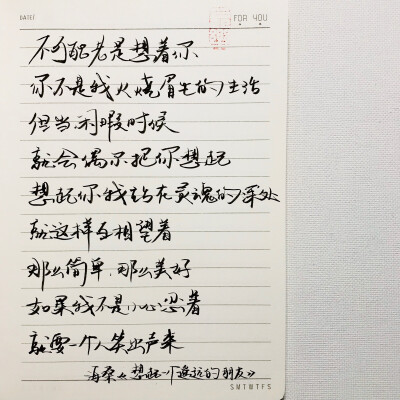 DATE:
FOR YOU
不可能老是想着你
你不是我火烧眉毛的生活
但当闲暇时候
就会偶尔把你想起
想起你我站在灵魂的深处
就这样互相望着
那么简单，那么美好
如果我不是小心忍着
就要一个人笑出声来
海桑《想起一个遥远的朋友》
S M T W T F S